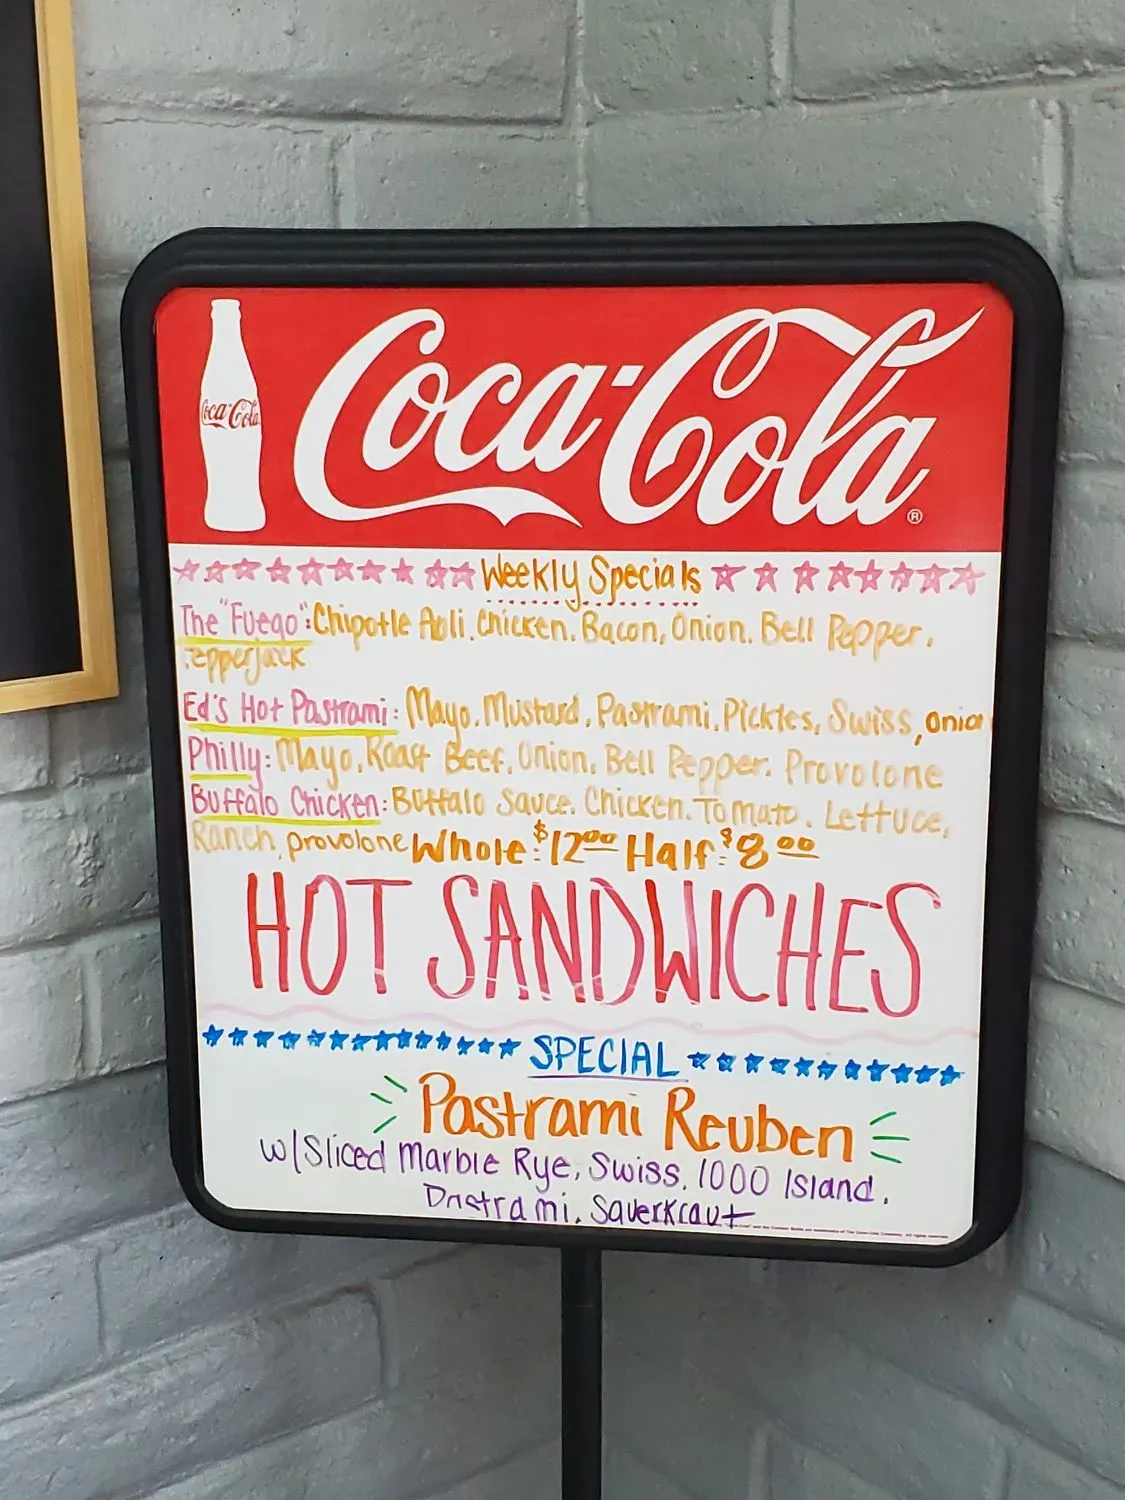 Coca-Cola
Coca-Cola ®
Weekly Specials
The "Fuego": Chipotle Aoli, Chicken, Bacon, Onion, Bell Pepper,
Pepperjack
Ed's Hot Pastrami: Mayo, Mustard, Pastrami, Pickles, Swiss, Onion
Philly: Mayo, Roast Beef, Onion, Bell Pepper, Provolone
Buffalo Chicken: Buffalo Sauce, Chicken, Tomato, Lettuce,
Ranch, provolone Whole: $12.00 Half: $8.00
HOT SANDWICHES
SPECIAL
Pastrami Reuben
w/ Sliced Marble Rye, Swiss, 1000 Island,
Pastrami, Sauerkraut